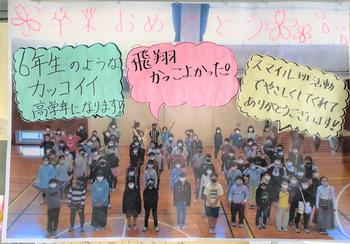 卒業おめでとう
6年生のような
カッコイイ
高学年になります!!
飛翔
かっこよかった!!
スマイル班活動
でやさしくしてくれて
ありがとうございます!!